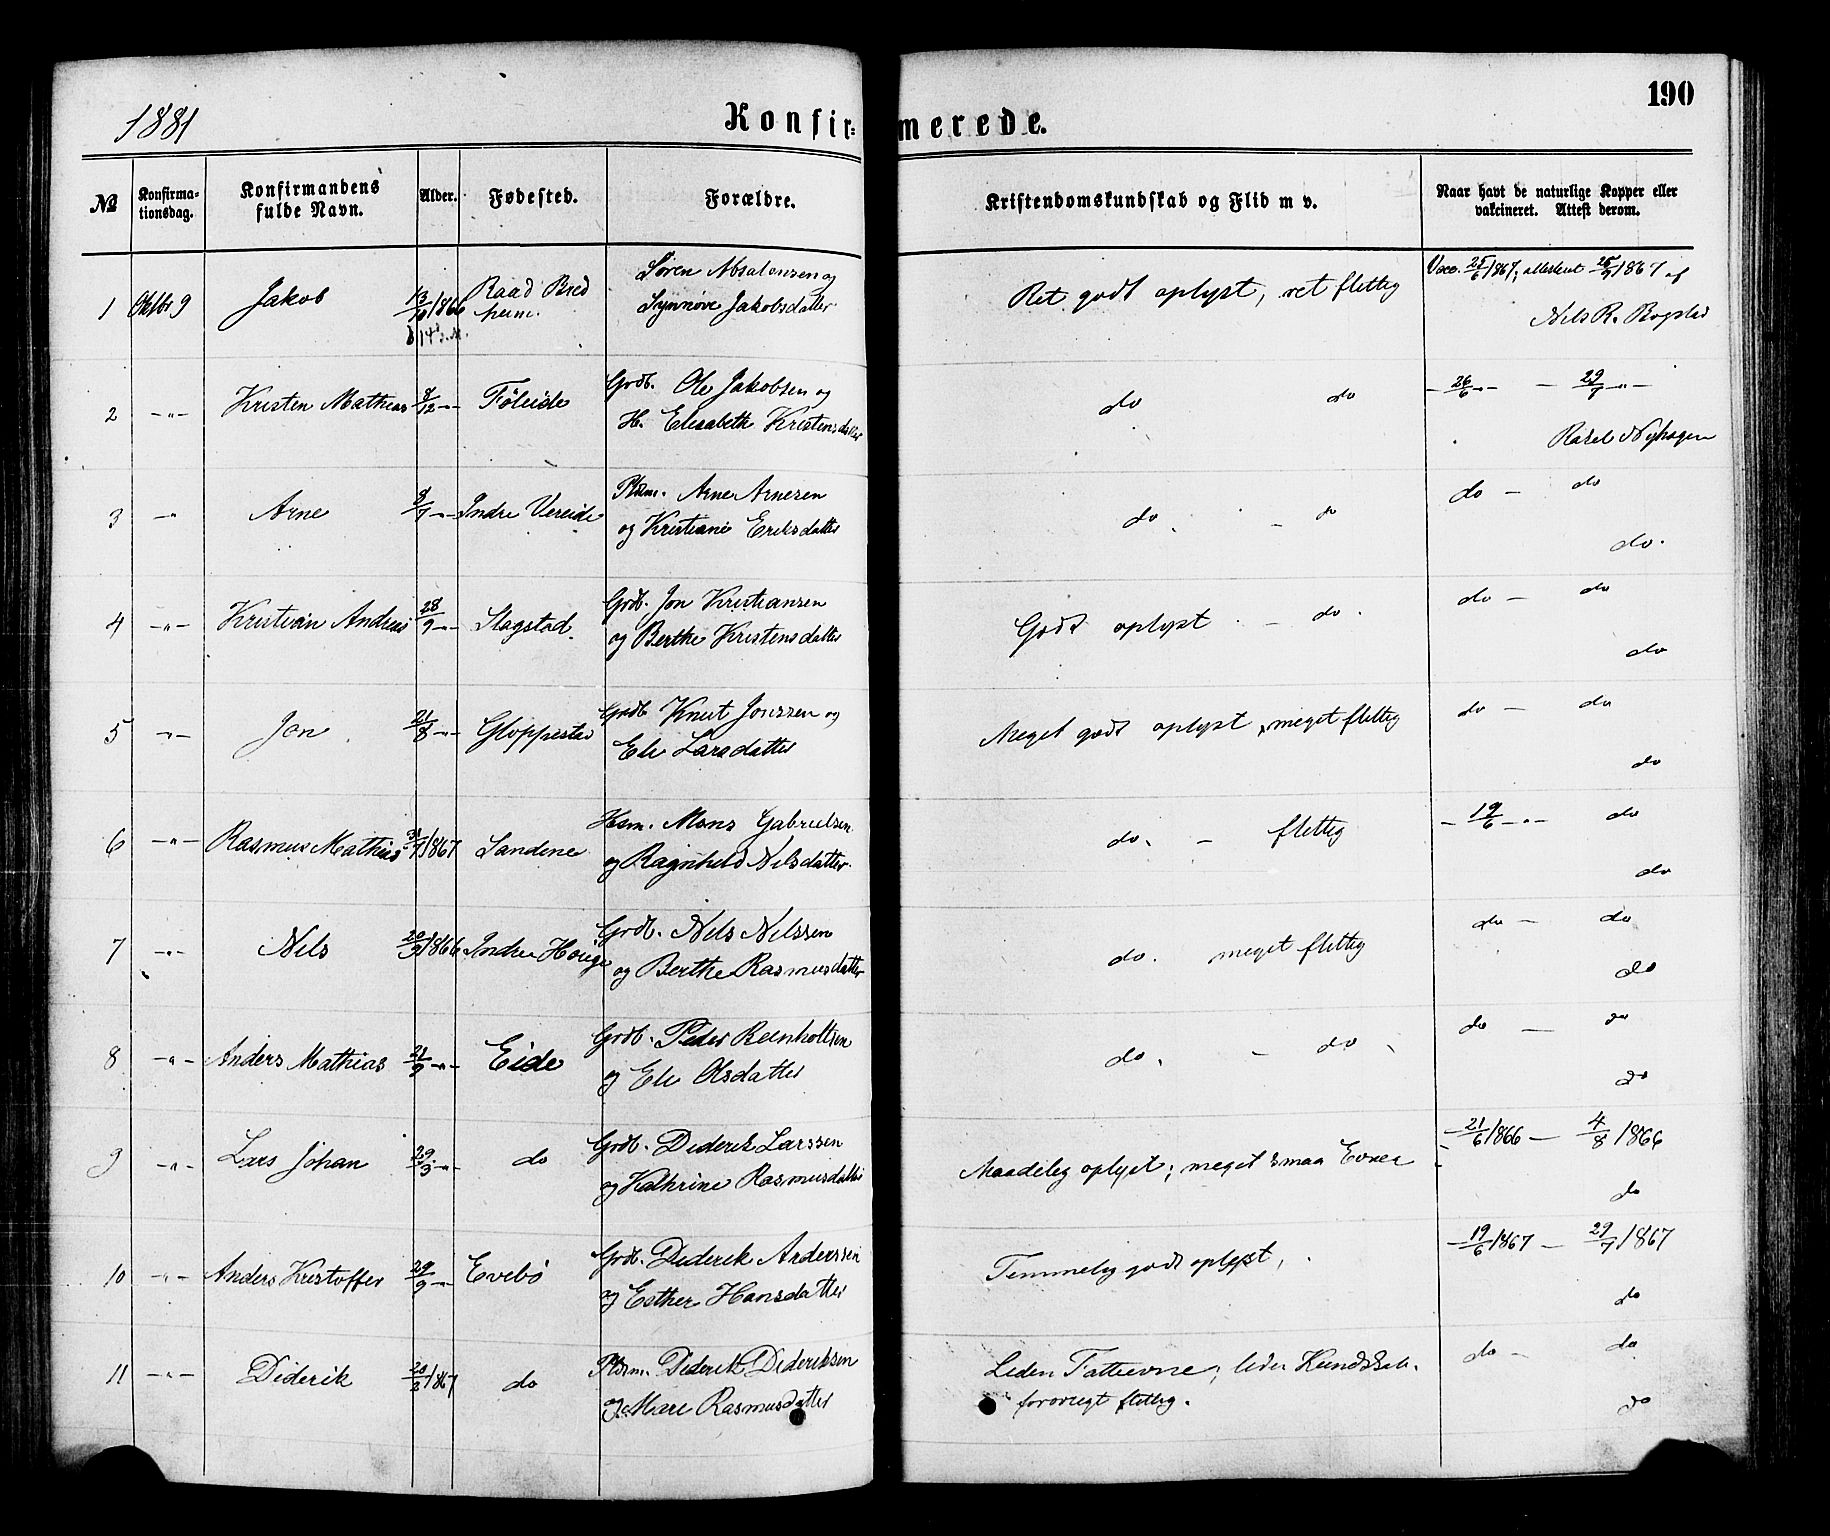 190
1881
Konfirmerede.
№ Konfirmationsdag. Konfirmandens fulde Navn. Alder. Fødested. Forældre. Kristendomskundskab og Flid m v. Naar havt de naturlige Kopper eller vakcineret. Attest derom.
1 Oktbr 9 Jakob 13/10 1866 Raad Bredheim. Søren Absalonsen og Synnøve Jakobsdatter Ret godt oplyst, ret flittig Vacc. 25/6 1867, attesteret 1867 af Nils R. Bogstad
2 -"- Kristen Mathias /12 -"- Føleide Grdb. Ole Jakobsen og H. Elisabeth Kristensdatter do do -26/6 -"- - 29/7 -"- Rasel Nyhagen
3 -"- Arne /7 -"- Indre Vereide Pldsm. Arne Arnesen og Kristiane Eriksdatter do. - do do - do do.
4 -"- Kristian Andreas 28/9 -"- Slagstad. Grdb. Jon Kristiansen og Berthe Kristensdatter Godt oplyst. - do. do - do do
5 -"- Jon 21/8 -"- Gloppestad Grdb. Knut Jonssen og Eli Larsdatter Meget godt oplyst, meget flittig do - do do
6 -"- Rasmus Mathias 1867 Sandene Hsm. Mons Gabrielsen og Ragnhild Nilsdatter. do. - flittig - 19/6 -"- do do
7 -"- Nils 1866 Indre Hauge Grdb. Nils Nilssen og Berthe Rasmusdatter do. meget flittig do - do do
8 -"- Anders Mathias 21/9 -"- Eide Grdb. Peder Reinholtsen og Eli Olsdatter do. - do. do - do do
9 -"- Lars Johan -"- do Grdb. Diderik Larssen og Kathrine Rasmusdatter Maadelig oplyst; meget smaa Evner -21/6 1866 - 4/8 1866 do
10 -"- Anders Kristoffer 29/9 -"- Evebø Grdb. Diderik Anderssen og Esther Hansdatter Temmelig godt oplyst, -19/6 1867 - 29/7 1867 do
11 -"- Diderik 20/2 1867 do Pldsm. Diderik Dideriksen og Mari Rasmusdatter Liden Fatteevne; liden Kundskab. forøvrigt flittig. do - do do